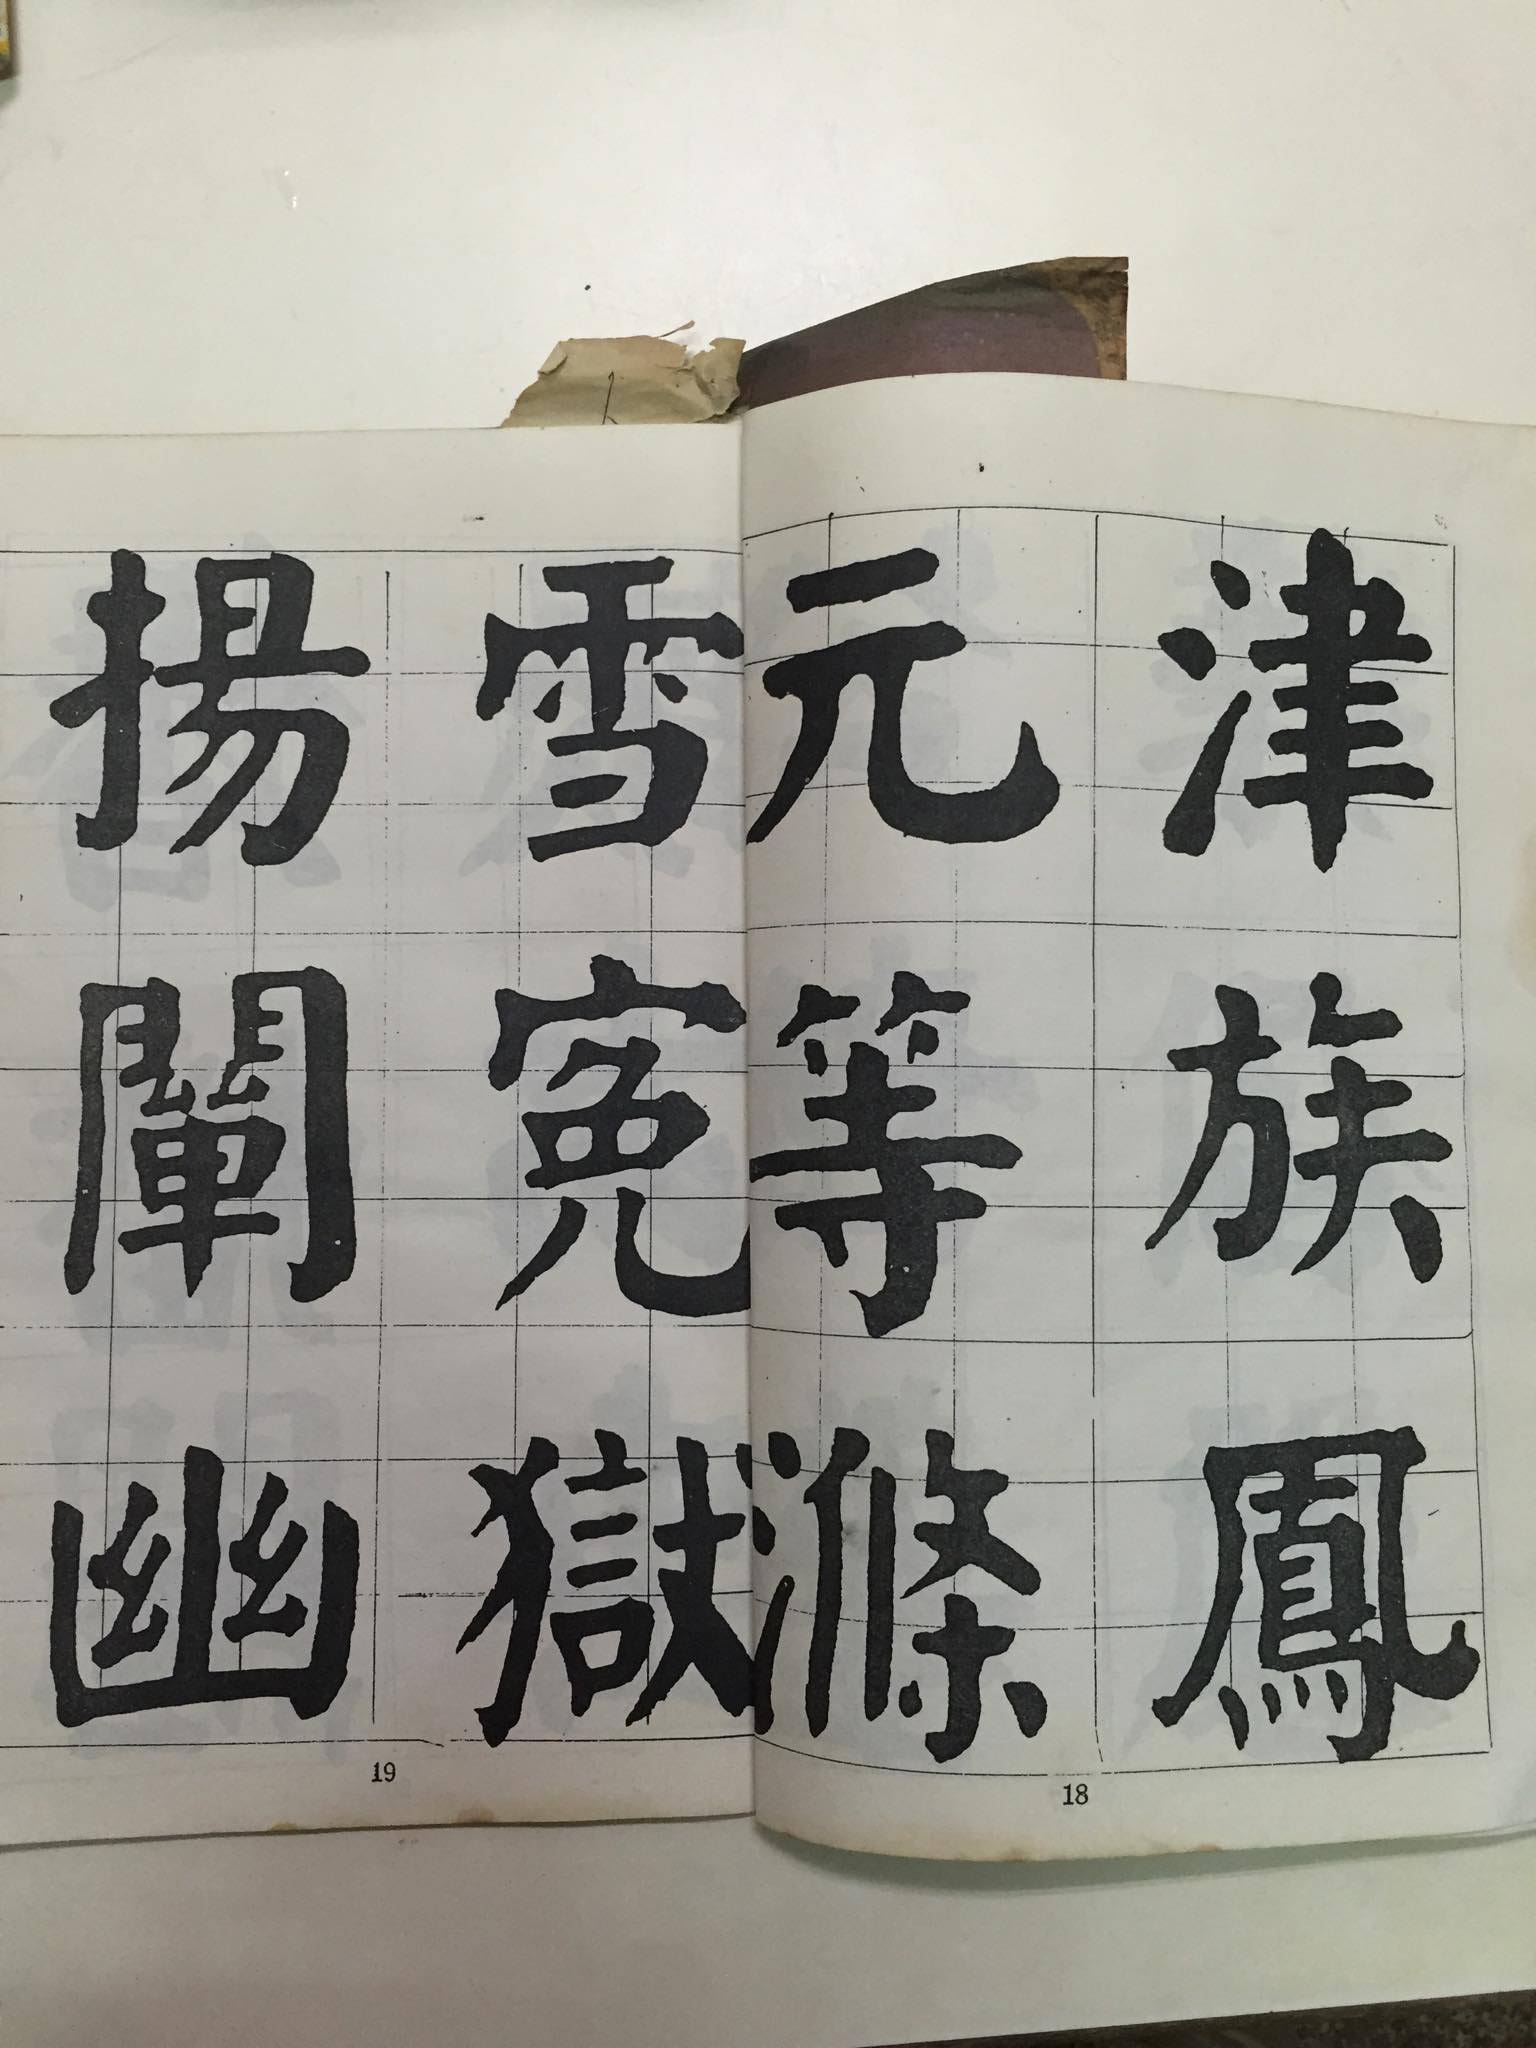 津族鳳
元等滌
雪寃獄
揚闡幽
18
19